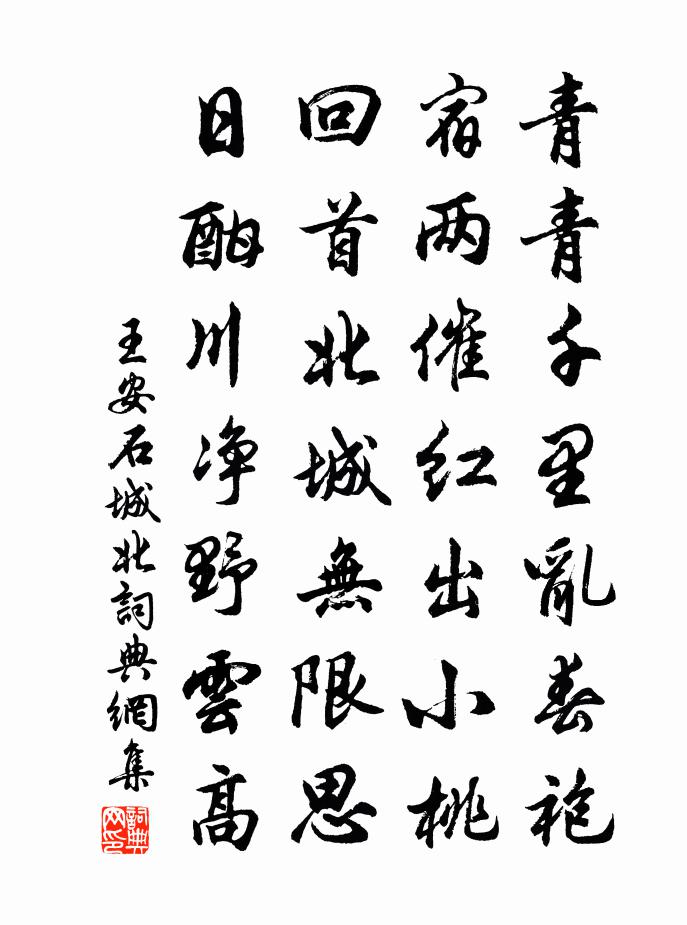 青青千里亂春袍
宿雨催紅出小桃
回首北城無限思
日酣川净野雲高
王安石城北詞典網集
詞典网印